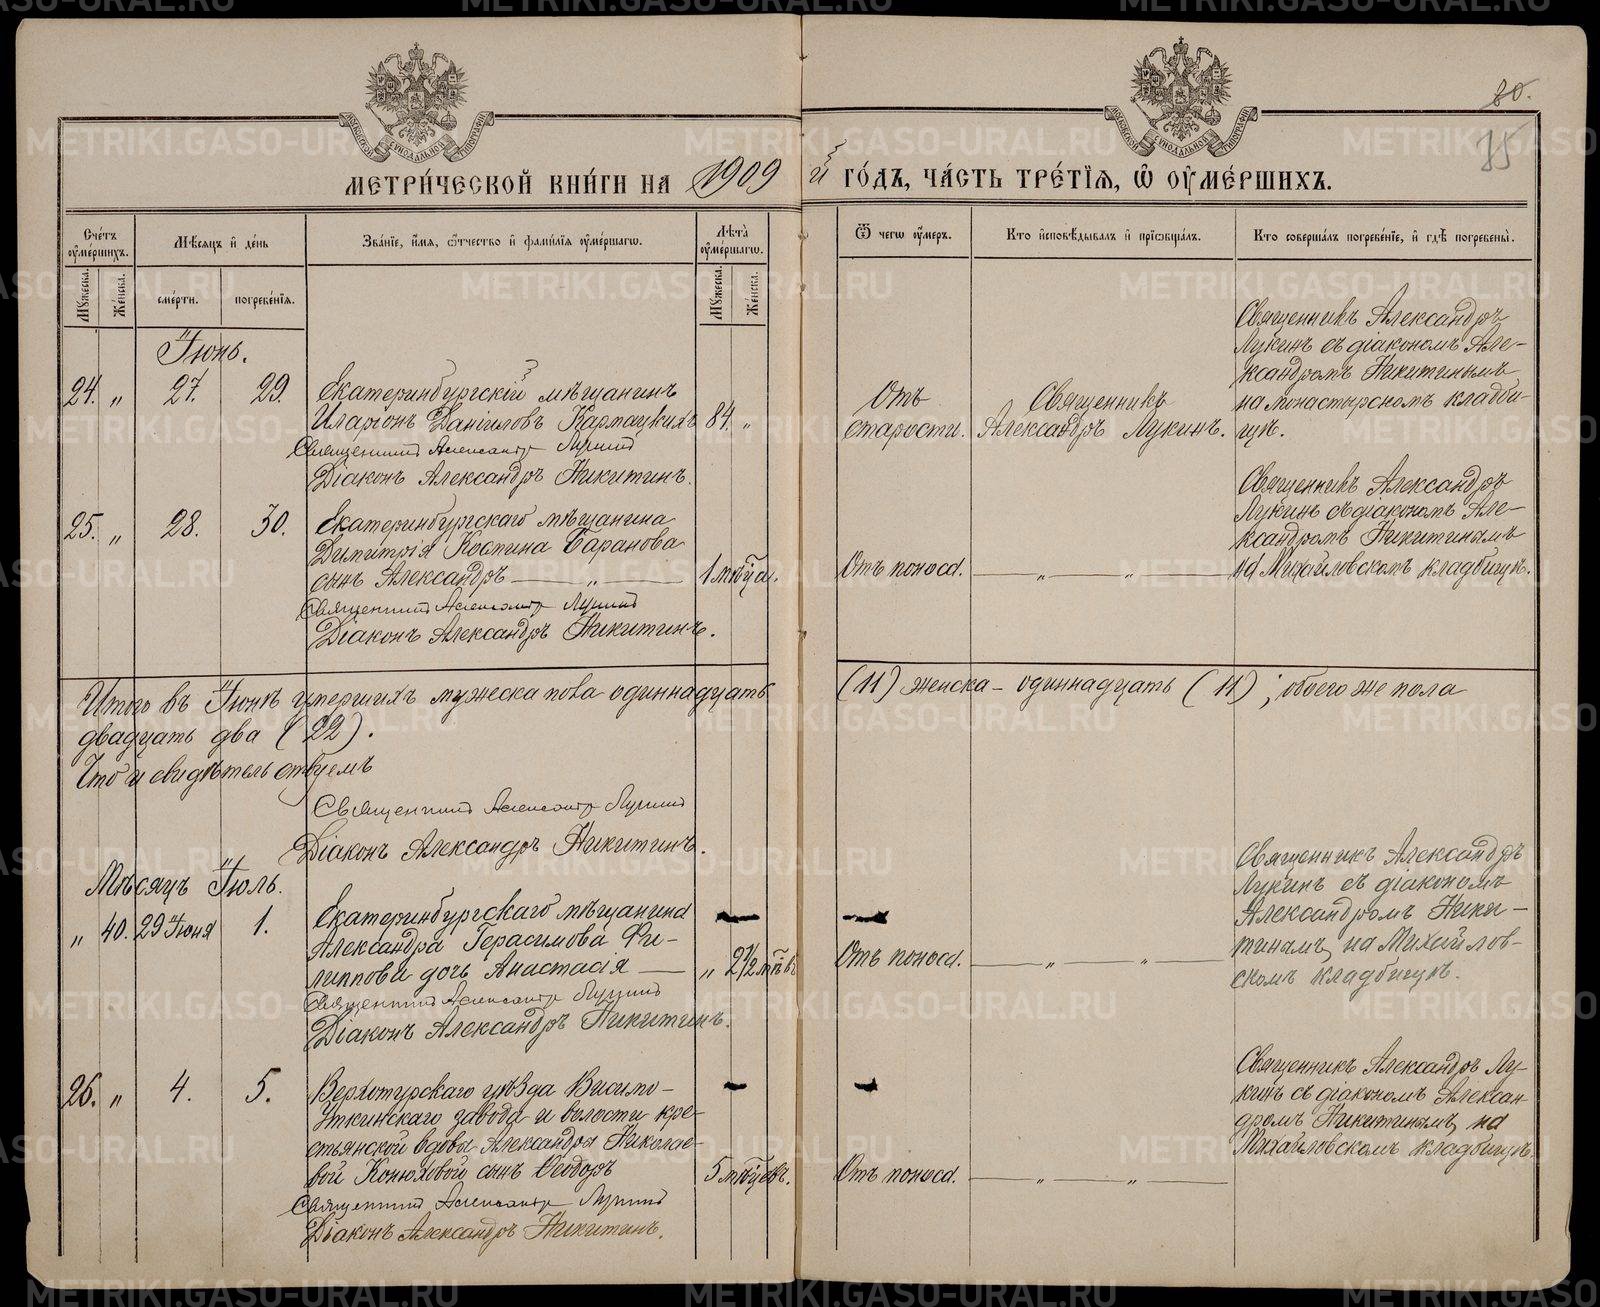 80.
75
МЕТРИ́ЧЕСКОЙ КНИ́ГИ НА 1909 й ГО́ДЪ, ЧА́СТЬ ТРЕ́ТІЯ, Ѡ ОУМЕ́РШИХЪ.
Сче́тъ оумершихъ.
Мѣсяцъ и де́нь
Зва́ніе, имя, отчество и фами́лія оуме́ршагѡ.
Лѣта̀ оуме́ршагѡ.
Ѿ чегѡ оумеръ.
Кто исповѣ́дывалъ и пріѡбща́лъ.
Кто соверша́лъ погребе́ніе, и гдѣ погребены̀.
Мужеска.
Же́нска.
сме́рти.
погребе́нія.
Мужеска.
Же́нска.
Іюнь.
24. „ 27. 29.
Екатеринбургскій мѣщанинъ
Иларіонъ Даніиловъ Карпацкихъ 84. „
Священникъ Александръ Лукинъ
Діаконъ Александръ Никитинъ.
Отъ
старости.
Священникъ
Александръ Лукинъ.
Священникъ Александръ
Лукинъ съ діакономъ Але-
ксандромъ Никитинымъ
на монастырскомъ кладби-
щѣ.
25. „ 28. 30.
Екатеринбургскаго мѣщанина
Димитрія Костина Баранова
сынъ Александръ — „ — 1 мѣсяца.
Священникъ Александръ Лукинъ
Діаконъ Александръ Никитинъ.
Отъ поноса. — „ — „ —
Священникъ Александръ
Лукинъ съ діакономъ Але-
ксандромъ Никитинымъ
на Михайловскомъ кладбищѣ.
Итого въ Іюнѣ умершихъ мужеска пола одиннадцать (11) женска - одиннадцать (11); обоего же пола
двадцать два (22).
Что и свидѣтельствуемъ
Священникъ Александръ Лукинъ
Діаконъ Александръ Никитинъ.
Мѣсяцъ Іюль.
„ 40. 29 Іюня 1.
Екатеринбургскаго мѣщанина
Александра Герасимова Фи-
липпова дочь Анастасія — „ 2 1/2 мѣс.
Священникъ Александръ Лукинъ
Діаконъ Александръ Никитинъ.
Отъ поноса. — „ — „ —
Священникъ Александръ
Лукинъ съ діакономъ
Александромъ Ники-
тинымъ, на Михайлов-
скомъ кладбищѣ.
26. „ 4. 5.
Верхотурскаго уѣзда Висимо-
Уткинскаго завода и волости кре-
стьянской вдовы Александры Николае-
вой Конюховой сынъ Ѳеодоръ 5 мѣсяцевъ.
Священникъ Александръ Лукинъ
Діаконъ Александръ Никитинъ.
Отъ поноса. — „ — „ —
Священникъ Александръ Лу-
кинъ съ діакономъ Алексан-
дромъ Никитинымъ, на
Михайловскомъ кладбищѣ.
METRIKI.GASO-URAL.RU